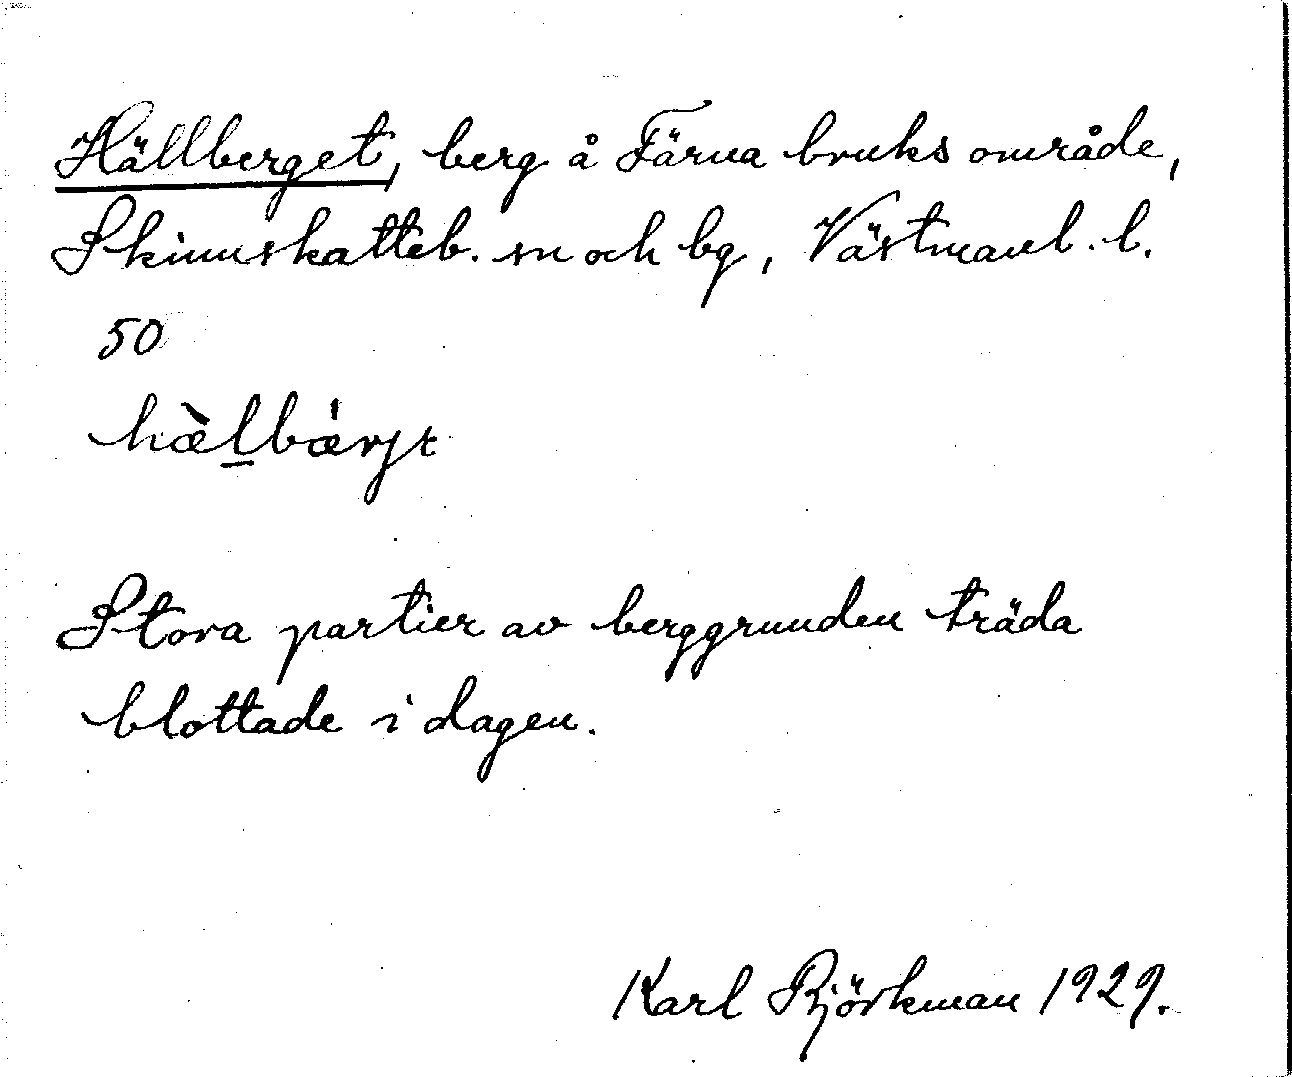 Hällberget, berg å Färna bruks område,
Skinnskatteb. sn och bg, Västmanl. l.
50
hæ̀l̠bæ̍rjt
Stora partier av berggrunden träda
blottade i dagen.
Karl Björkman 1929.